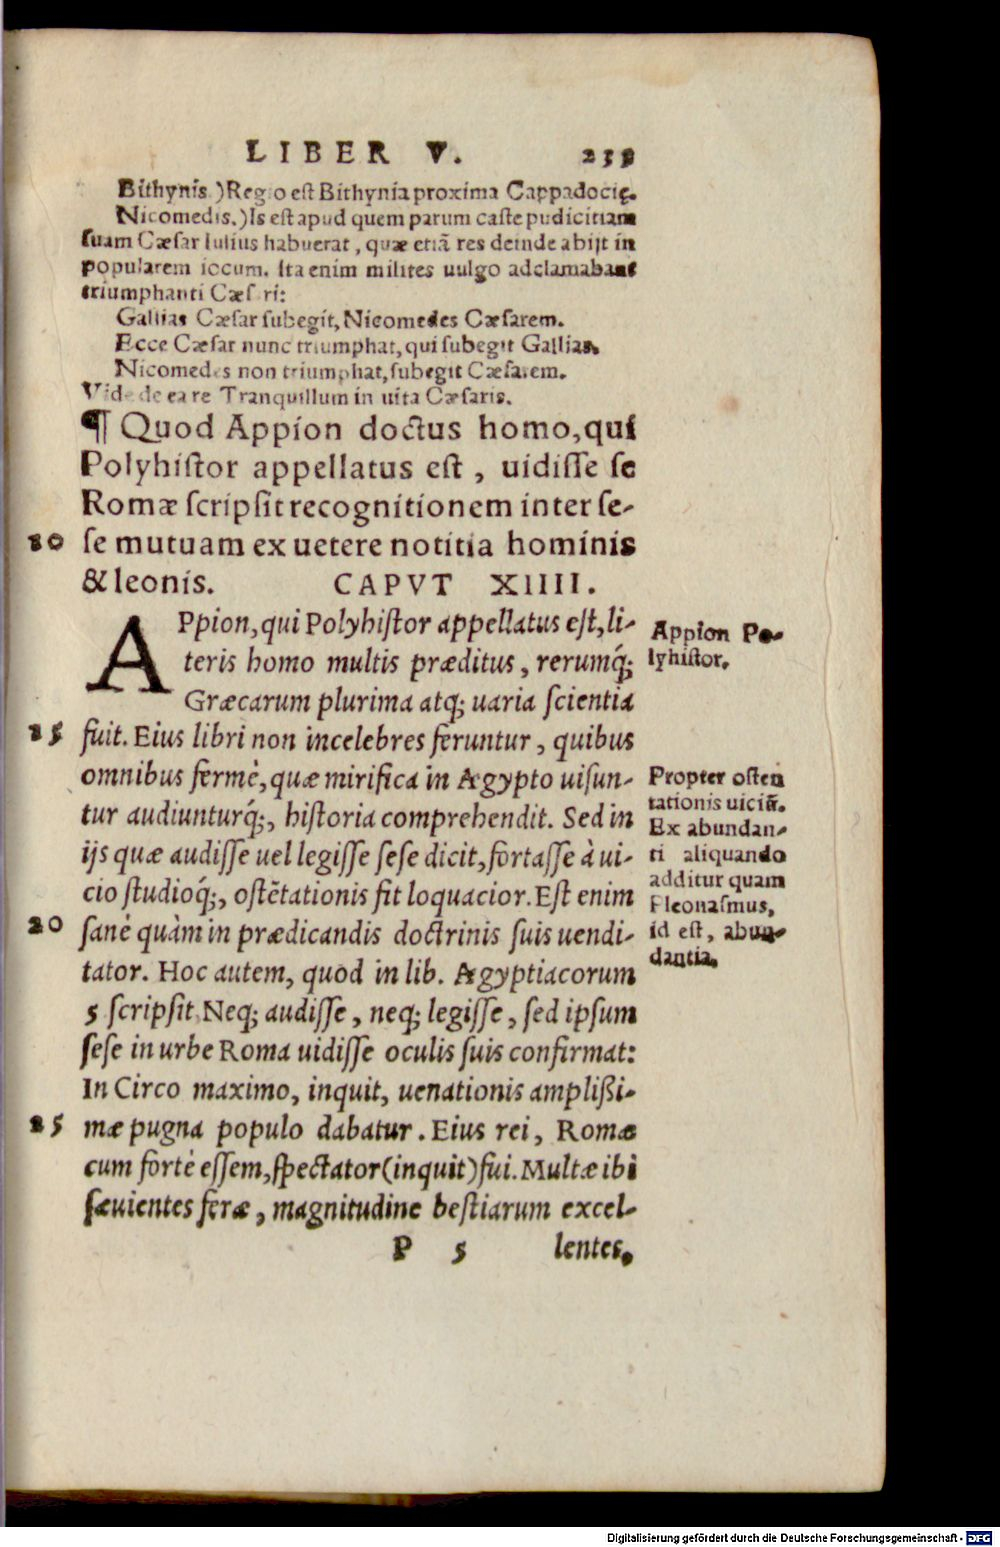 LIBER V. 239
Bithynis.) Regio est Bithynia proxima Cappadocię.
Nicomedis.) Is est apud quem parum caste pudicitiam
suam Cæsar Iulius habuerat, quæ etiã res deinde abijt in
popularem iocum. Ita enim milites uulgo adclamabant
triumphanti Cæsari:
Gallias Cæsar subegit, Nicomedes Cæsarem.
Ecce Cæsar nunc triumphat, qui subegit Gallias.
Nicomedes non triumphat, subegit Cæsarem.
Vide de ea re Tranquillum in uita Cæsaris.
¶ Quod Appion doctus homo, qui
Polyhistor appellatus est, uidisse se
Romæ scripsit recognitionem inter se-
10 se mutuam ex uetere notitia hominis
& leonis. CAPVT XIIII.
APpion, qui Polyhistor appellatus est, li-
teris homo multis præditus, rerumq́;
Græcarum plurima atq; uaria scientia
15 fuit. Eius libri non incelebres feruntur, quibus
omnibus fermè, quæ mirifica in Aegypto uisun-
tur audiunturq́;, historia comprehendit. Sed in
ijs quæ audisse uel legisse sese dicit, fortasse à ui-
cio studioq́;, ostẽtationis fit loquacior. Est enim
20 sanè quàm in prædicandis doctrinis suis uendi-
tator. Hoc autem, quod in lib. Aegyptiacorum
5 scripsit, Neq; audisse, neq; legisse, sed ipsum
sese in urbe Roma uidisse oculis suis confirmat:
In Circo maximo, inquit, uenationis amplißi-
25 mæ pugna populo dabatur. Eius rei, Romæ
cum fortè essem, spectator (inquit) fui. Multæ ibi
sæuientes feræ, magnitudine bestiarum excel-
P 5 lentes,
Appion Po-
lyhistor.
Propter osten
tationis uiciũ.
Ex abundan-
ti aliquando
additur quam
Pleonasmus,
id est, abun-
dantia.
Digitalisierung gefördert durch die Deutsche Forschungsgemeinschaft - DFG